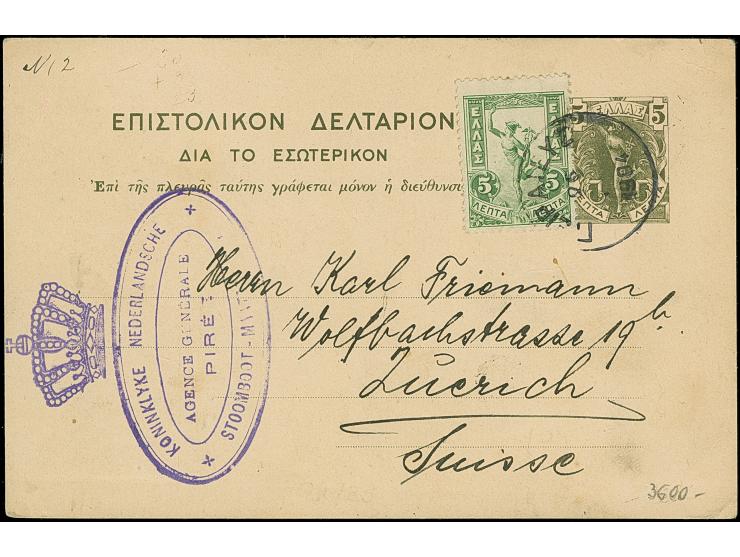 N 2
ΕΠΙΣΤΟΛΙΚΟΝ ΔΕΛΤΑΡΙΟΝ
ΔΙΑ ΤΟ ΕΣΩΤΕΡΙΚΟΝ
Ἐπὶ τῆς πλευρᾶς ταύτης γράφεται μόνον ἡ διεύθυνσις
ΕΛΛΑΣ
5 5
ΛΕΠΤΑ ΛΕΠΤΑ
5 ΕΛΛΑΣ 5
ΛΕΠΤΑ ΛΕΠΤΑ
KONINKLYKE NEDERLANDSCHE
STOOMBOOT-
AGENCE GÉNÉRALE
PIRÉE
Herrn Karl Friemann
Wolfbachstrasse 19 b.
Zuerich
Suisse
3600-